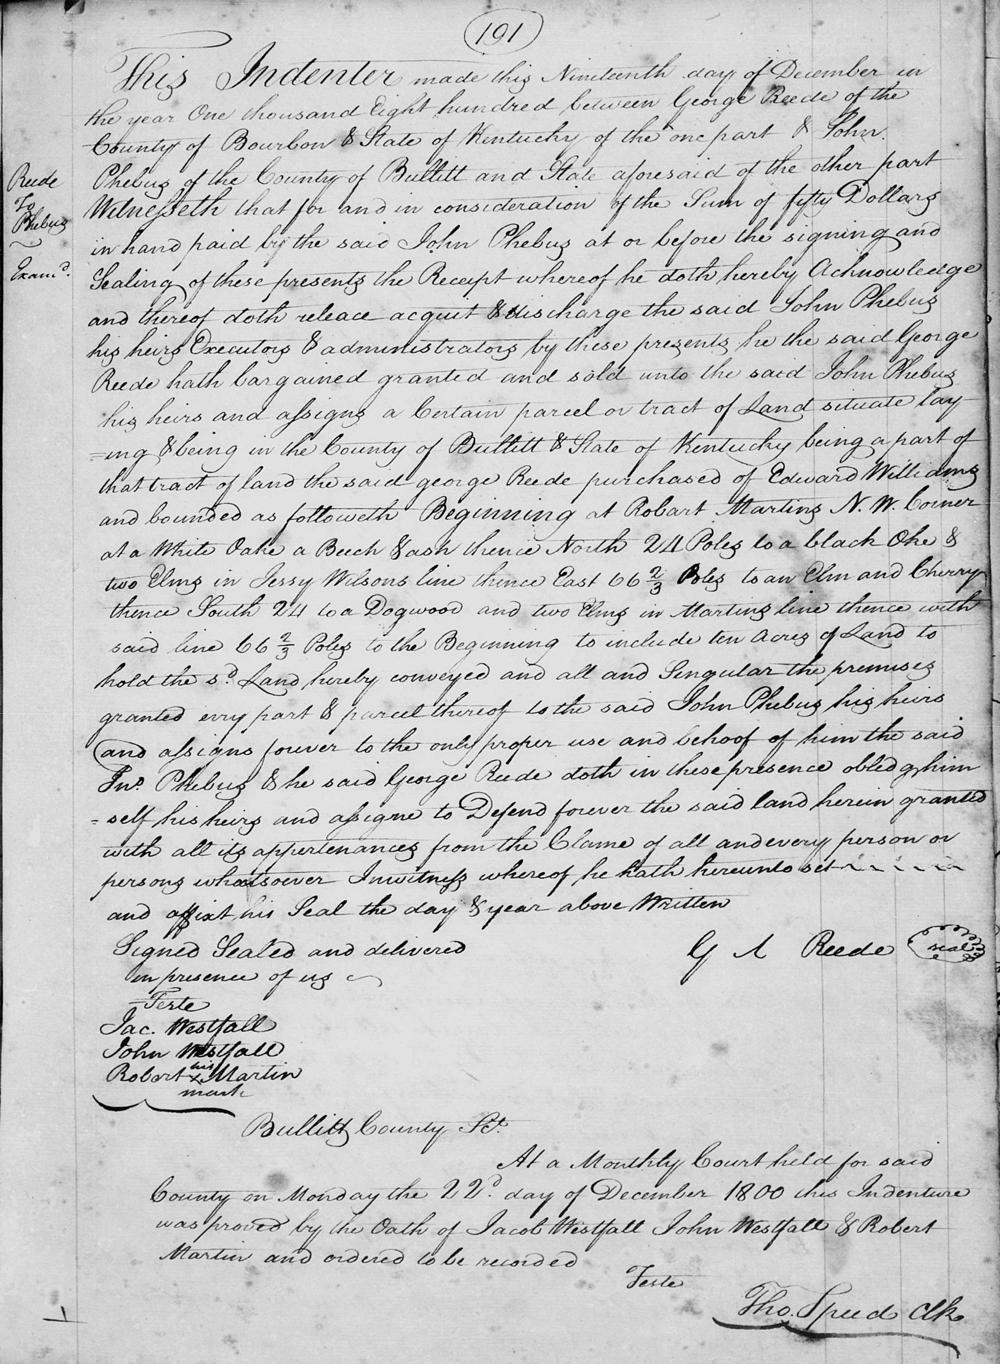 191
This Indenter made this Nineteenth day of December in
the year One thousand Eight hundred between George Reede of the
County of Bourbon & State of Kentucky of the one part & John
Phebus of the County of Bullitt and State aforesaid of the other part
Witnesseth that for and in consideration of the Sum of fifty Dollars
in hand paid by the said John Phebus at or before the signing and
Sealing of these presents the Receipt whereof he doth hereby Acknowledge
and thereof doth releace acquit & discharge the said John Phebus
his heirs Executors & administrators by these presents he the said George
Reede hath bargained granted and sold unto the said John Phebus
his heirs and assigns a Certain parcel or tract of Land situate lay
=ing & being in the County of Bullitt & State of Kentucky being a part of
that tract of land the said george Reede purchased of Edward Williams
and bounded as followeth Beginning at Robart Martins N. W. Corner
at a White Oake a Beech & ash thence North 24 Poles to a black Oke &
two Elms in Jessy Wilsons line thence East 66 2/3 Poles to an Elm and Cherry
thence South 24 to a Dogwood and two Elms in Martins line thence with
said line 66 2/3 Poles to the Beginning to include ten Acres of Land to
hold the sd. Land hereby conveyed and all and Singular the premises
granted evry part & parcel thereof to the said John Phebus his heirs
and assigns forever to the only proper use and behoof of him the said
Jno. Phebus & he said George Reede doth in these presence obledg him
=self his heirs and assigne to Defend forever the said land herein granted
with all its appertenances from the Clame of all and every person or
persons whatsoever In witness whereof he hath hereunto set
and affixt his Seal the day & year above Written
Signed Sealed and delivered
in presence of us
G A Reede seal
Teste
Jac. Westfall
John Westfall
Robert his x Martin
mark
Reede
To
Phebus
Examd.
Bullitt County Sct.
At a Monthly Court held for said
County on Monday the 22d. day of December 1800 this Indenture
was proved by the Oath of Jacob Westfall John Westfall & Robert
Martin and ordered to be recorded
Teste
Tho. Speed Clk